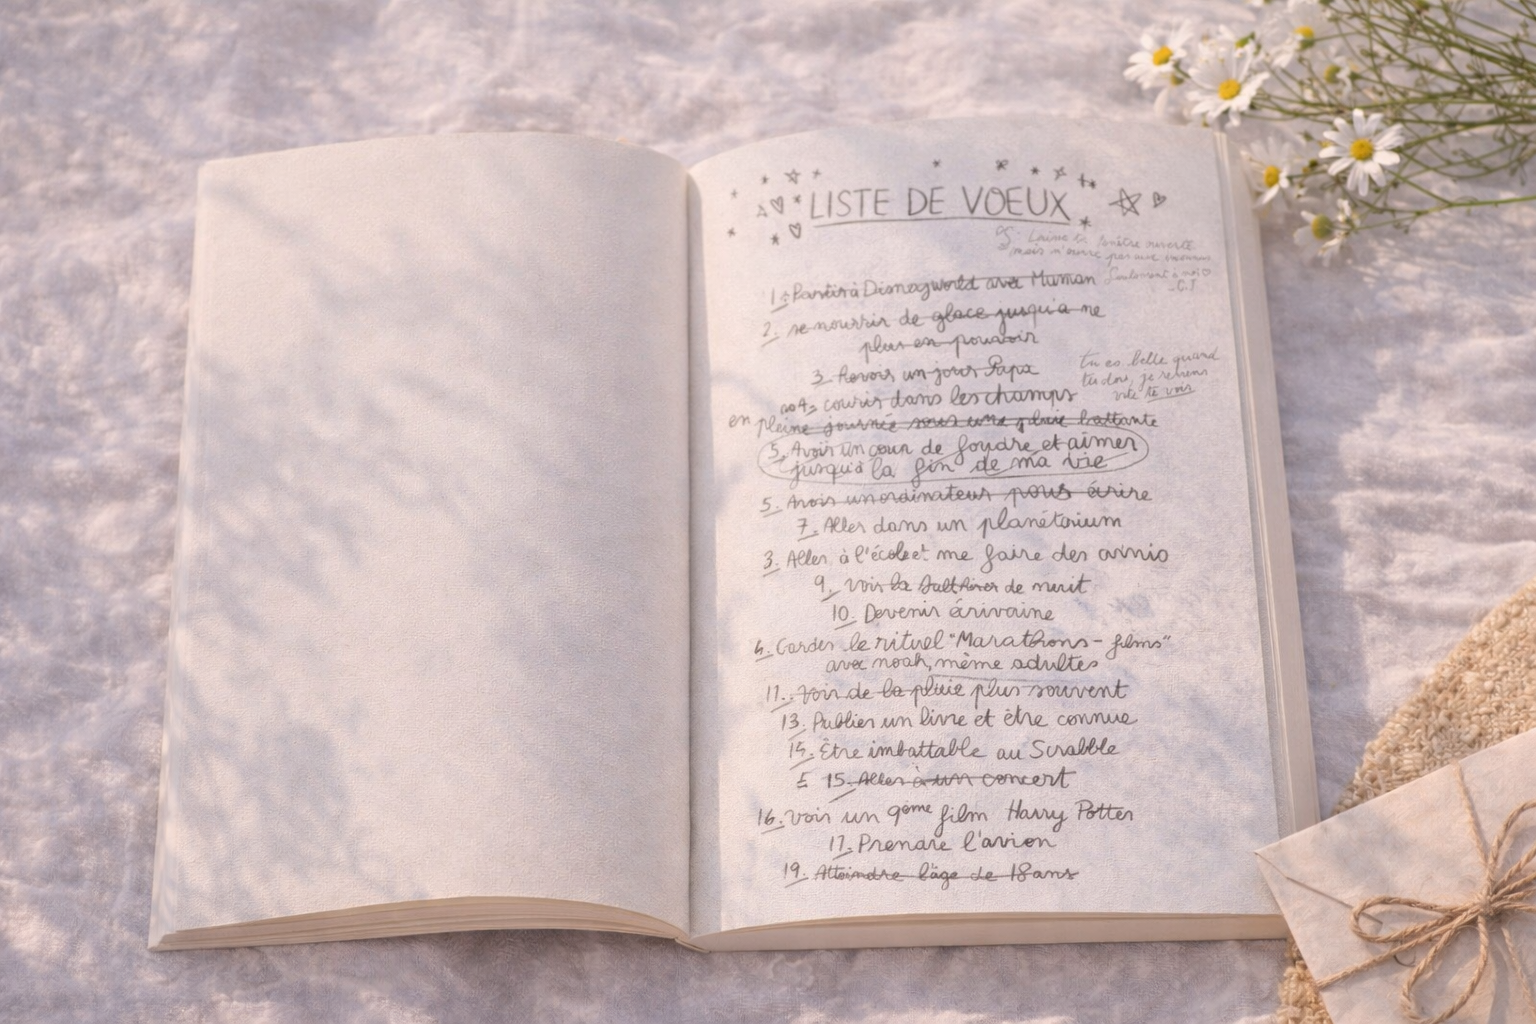 LISTE DE VOEUX
PS: Laisse ta fenêtre ouverte
mais n'ouvre pas aux inconnus
Seulement à moi ♡
- C.J
1. Partir à Disneyworld avec Maman
2. se nourrir de glace jusqu'à ne
plus en pouvoir
3. Revoir un jour Papa
tu es belle quand
tu dors, je reviens
vite te voir
4. courir dans les champs
en pleine journée sous une pluie battante
5. Avoir un coup de foudre et aimer
jusqu'à la fin de ma vie
5. Avoir un ordinateur pour écrire
7. Aller dans un planétarium
3. Aller à l'école et me faire des amis
9. Voir la de nuit
10. Devenir écrivaine
Garder le rituel "Marathons-films"
avec noah, même adultes
11. Voir de la pluie plus souvent
13. Publier un livre et être connue
Être imbattable au Scrabble
15. Aller à un concert
16. Voir un 9ème film Harry Potter
17. Prendre l'avion
19. Atteindre l'âge de 18 ans